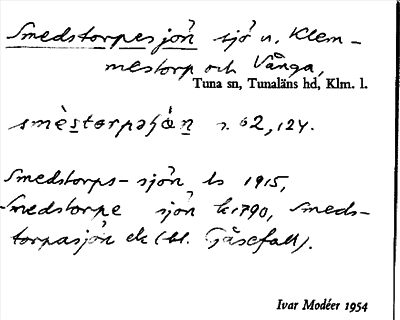 Smedstorpesjön sjö n. Klem-
mestorp och Vånga,
Tuna sn, Tunaläns hd, Klm. l.
s. 62, 124.
Smedstorps-sjön, ls 1915,
Smedstorpe sjön k 1790, Smeds-
torpasjön ek (bl. Gåsefall).
Ivar Modéer 1954